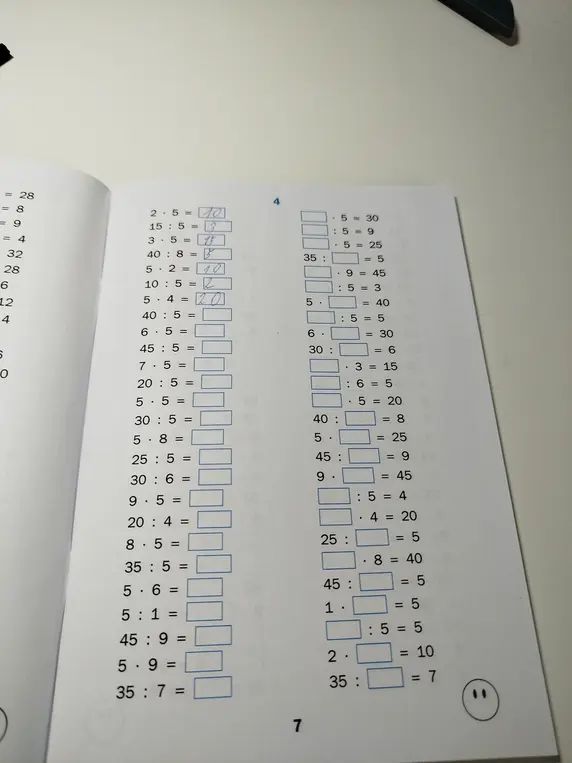 = 28
= 8
= 9
= 4
32
28
6
12
4
0
4
2 · 5 = 10
15 : 5 = 3
3 · 5 =
40 : 8 =
5 · 2 = 10
10 : 5 = 2
5 · 4 = 20
40 : 5 =
6 · 5 =
45 : 5 =
7 · 5 =
20 : 5 =
5 · 5 =
30 : 5 =
5 · 8 =
25 : 5 =
30 : 6 =
9 · 5 =
20 : 4 =
8 · 5 =
35 : 5 =
5 · 6 =
5 : 1 =
45 : 9 =
5 · 9 =
35 : 7 =
· 5 = 30
: 5 = 9
· 5 = 25
35 : = 5
· 9 = 45
: 5 = 3
5 · = 40
: 5 = 5
6 · = 30
30 : = 6
· 3 = 15
: 6 = 5
· 5 = 20
40 : = 8
5 · = 25
45 : = 9
9 · = 45
: 5 = 4
· 4 = 20
25 : = 5
· 8 = 40
45 : = 5
1 · = 5
: 5 = 5
2 · = 10
35 : = 7
7